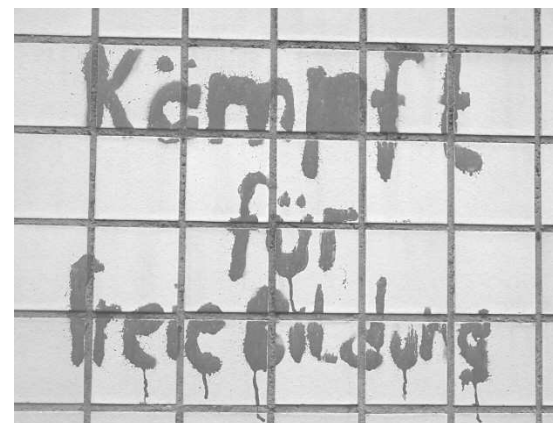 Kämpft
für
freie bildung